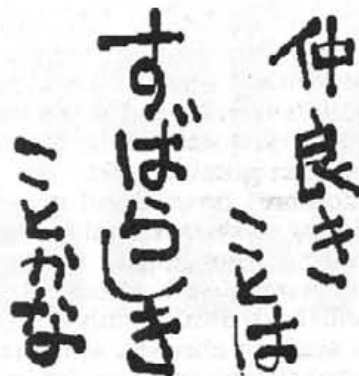 仲良き
ことは
すばらしき
ことがな